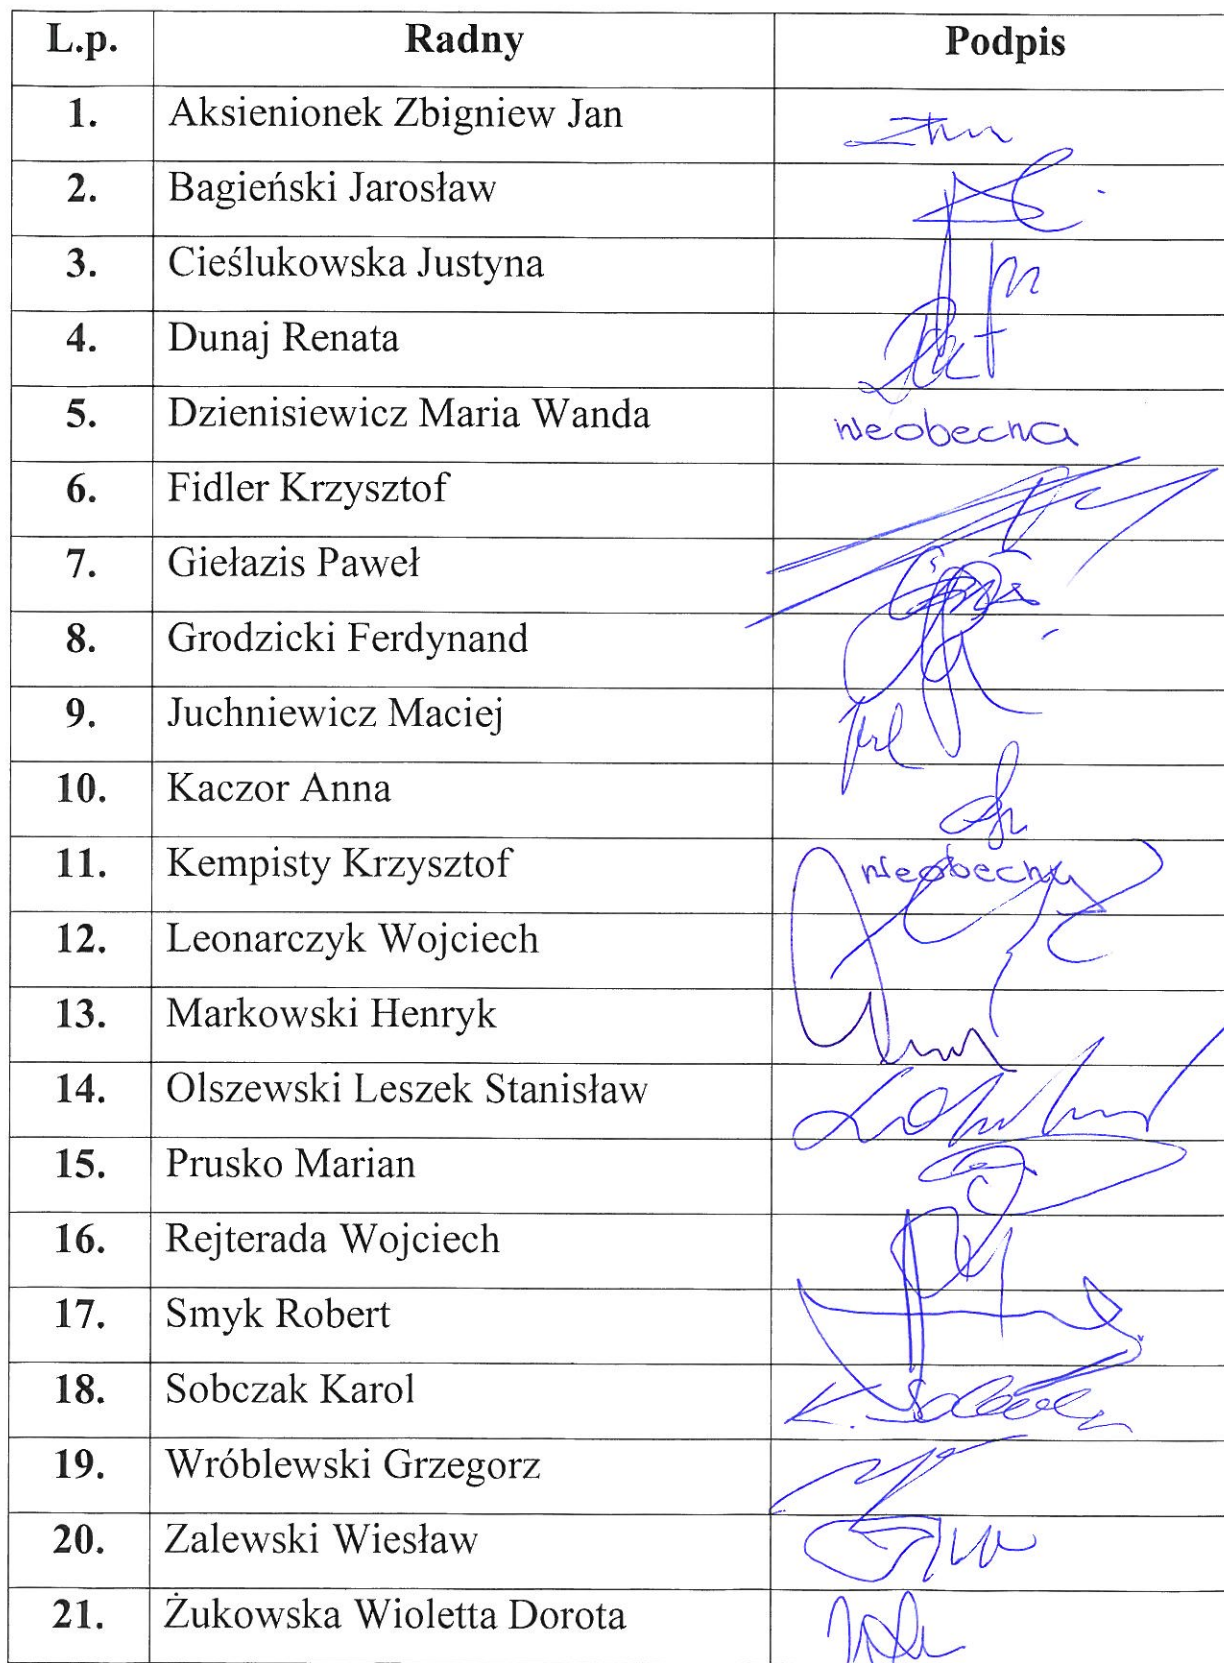 L.p. Radny Podpis
1. Aksienionek Zbigniew Jan
2. Bagieński Jarosław
3. Cieślukowska Justyna
4. Dunaj Renata
5. Dzienisiewicz Maria Wanda nieobecna
6. Fidler Krzysztof
7. Giełazis Paweł
8. Grodzicki Ferdynand
9. Juchniewicz Maciej
10. Kaczor Anna
11. Kempisty Krzysztof nieobecny
12. Leonarczyk Wojciech
13. Markowski Henryk
14. Olszewski Leszek Stanisław
15. Prusko Marian
16. Rejterada Wojciech
17. Smyk Robert
18. Sobczak Karol
19. Wróblewski Grzegorz
20. Zalewski Wiesław
21. Żukowska Wioletta Dorota